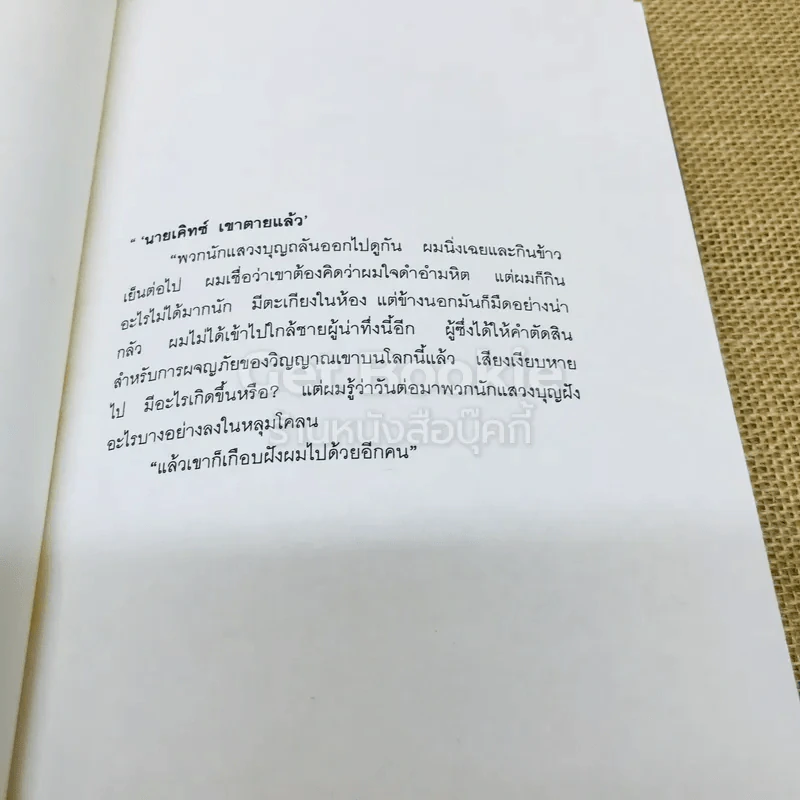 “ ‘นายเคิทซ์ เขาตายแล้ว’
“พวกนักแสวงบุญถลันออกไปดูกัน ผมนิ่งเฉยและกินข้าว
เย็นต่อไป ผมเชื่อว่าเขาต้องคิดว่าผมใจดำอำมหิต แต่ผมก็กิน
อะไรไม่ได้มากนัก มีตะเกียงในห้อง แต่ข้างนอกมันก็มืดอย่างน่า
กลัว ผมไม่ได้เข้าไปใกล้ชายผู้น่าทึ่งนี้อีก ผู้ซึ่งได้ให้คำตัดสิน
สำหรับการผจญภัยของวิญญาณเขาบนโลกนี้แล้ว เสียงเงียบหาย
ไป มีอะไรเกิดขึ้นหรือ? แต่ผมรู้ว่าวันต่อมาพวกนักแสวงบุญฝัง
อะไรบางอย่างลงในหลุมโคลน
“แล้วเขาก็เกือบฝังผมไปด้วยอีกคน”
Get Bookie
ร้านหนังสือบุ๊คกี้